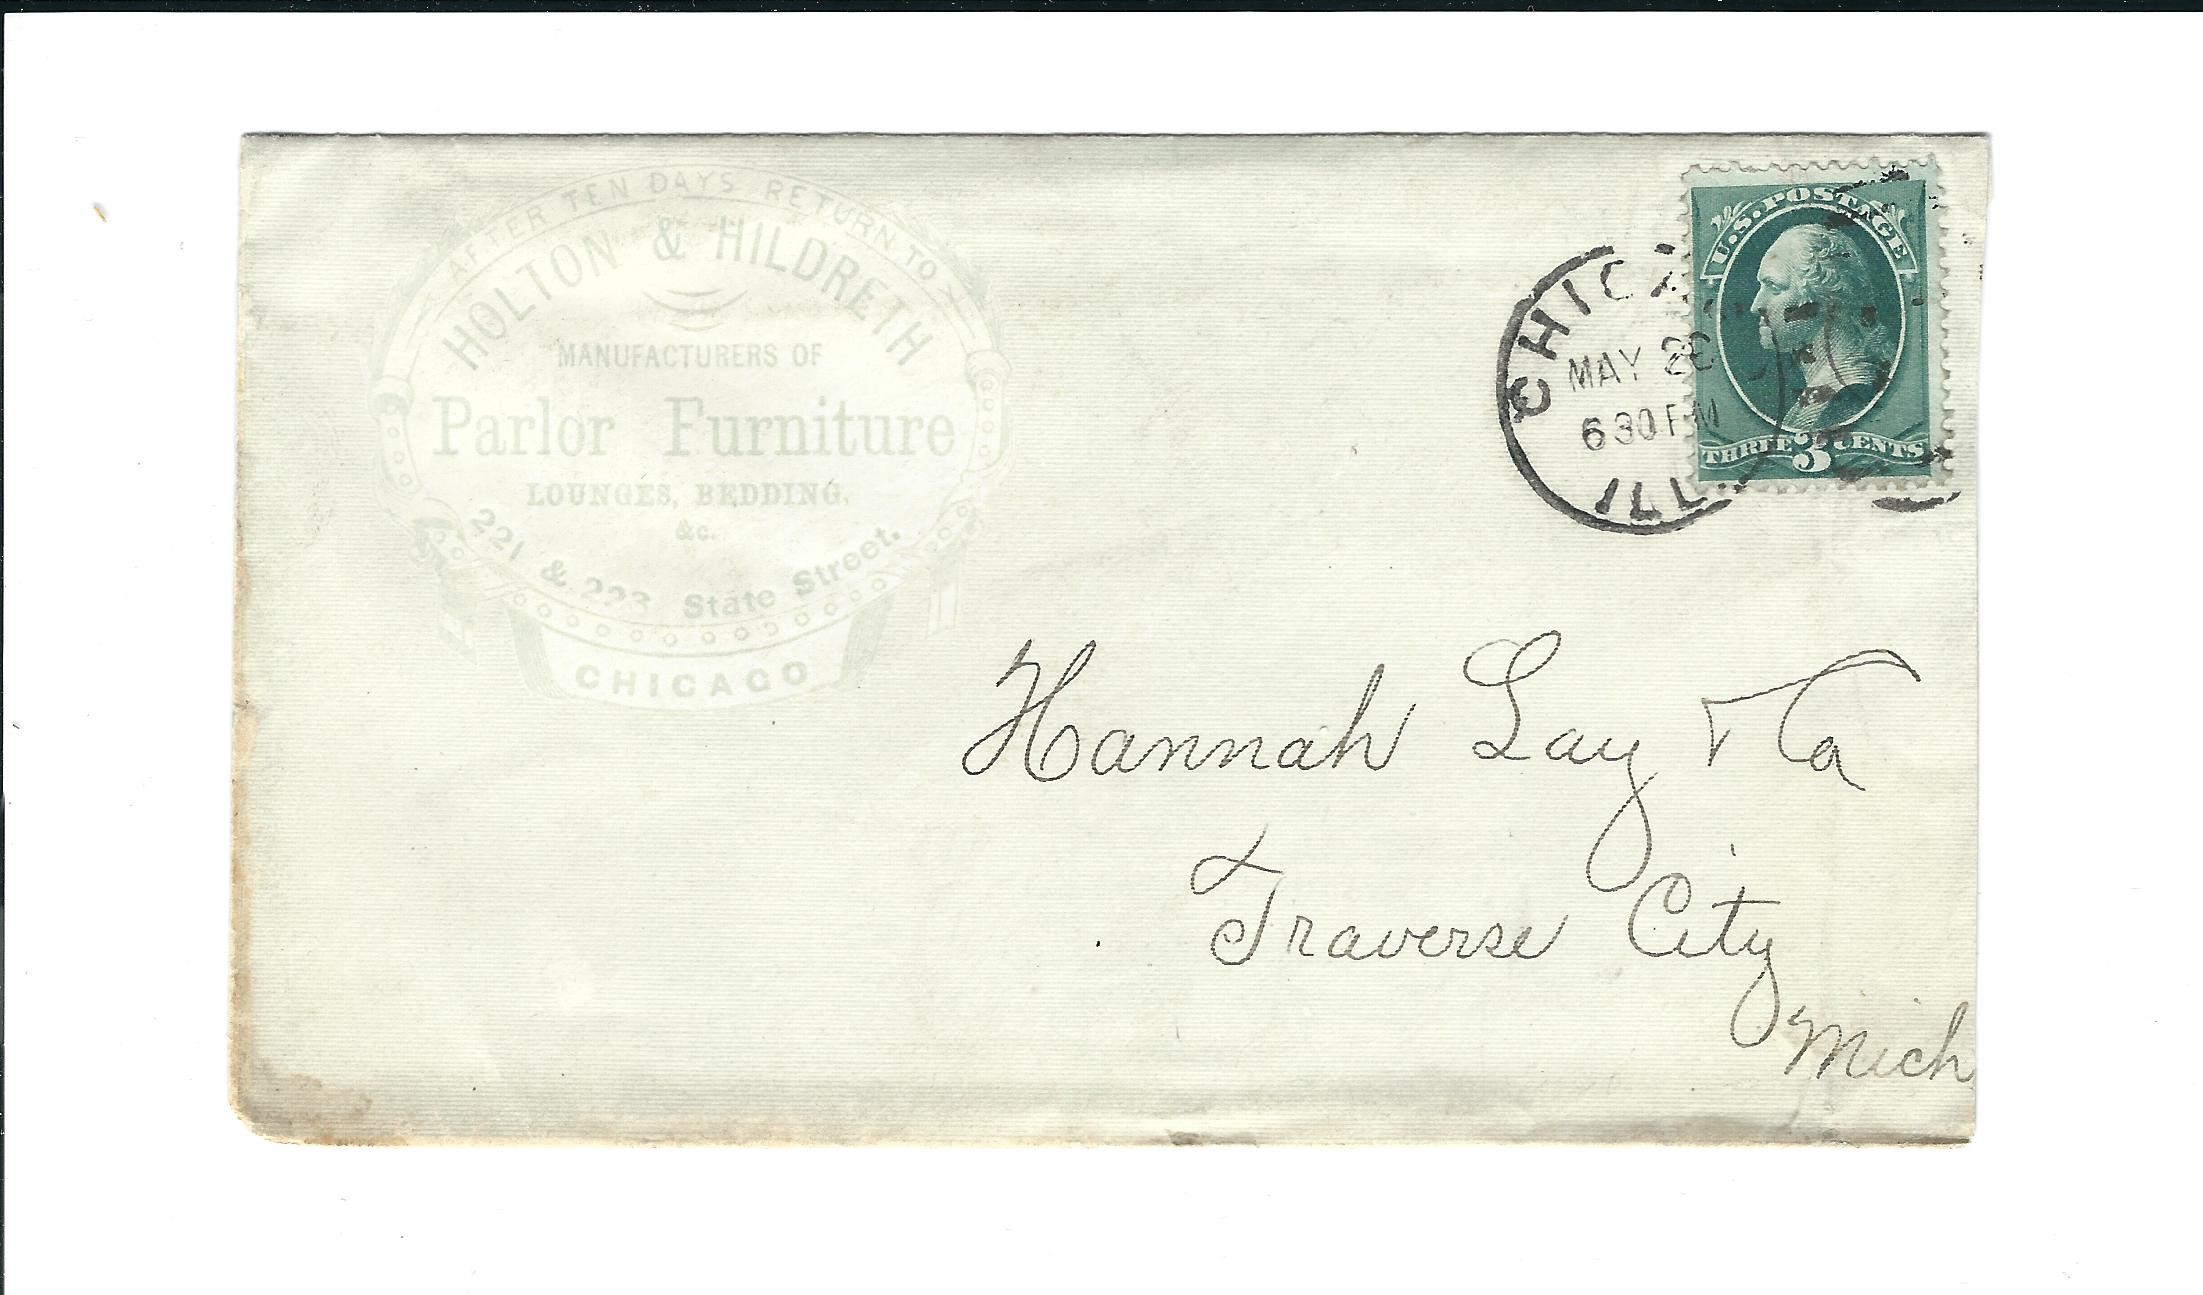 AFTER TEN DAYS RETURN TO
HOLTON & HILDRETH
MANUFACTURERS OF
Parlor Furniture
LOUNGES, BEDDING,
&c.
221 & 223 State Street.
CHICAGO
CHICA
MAY
630 PM
ILL.
U.S. POSTAGE
THREE 3 CENTS
Hannah Lay & Co
Traverse City
Mich